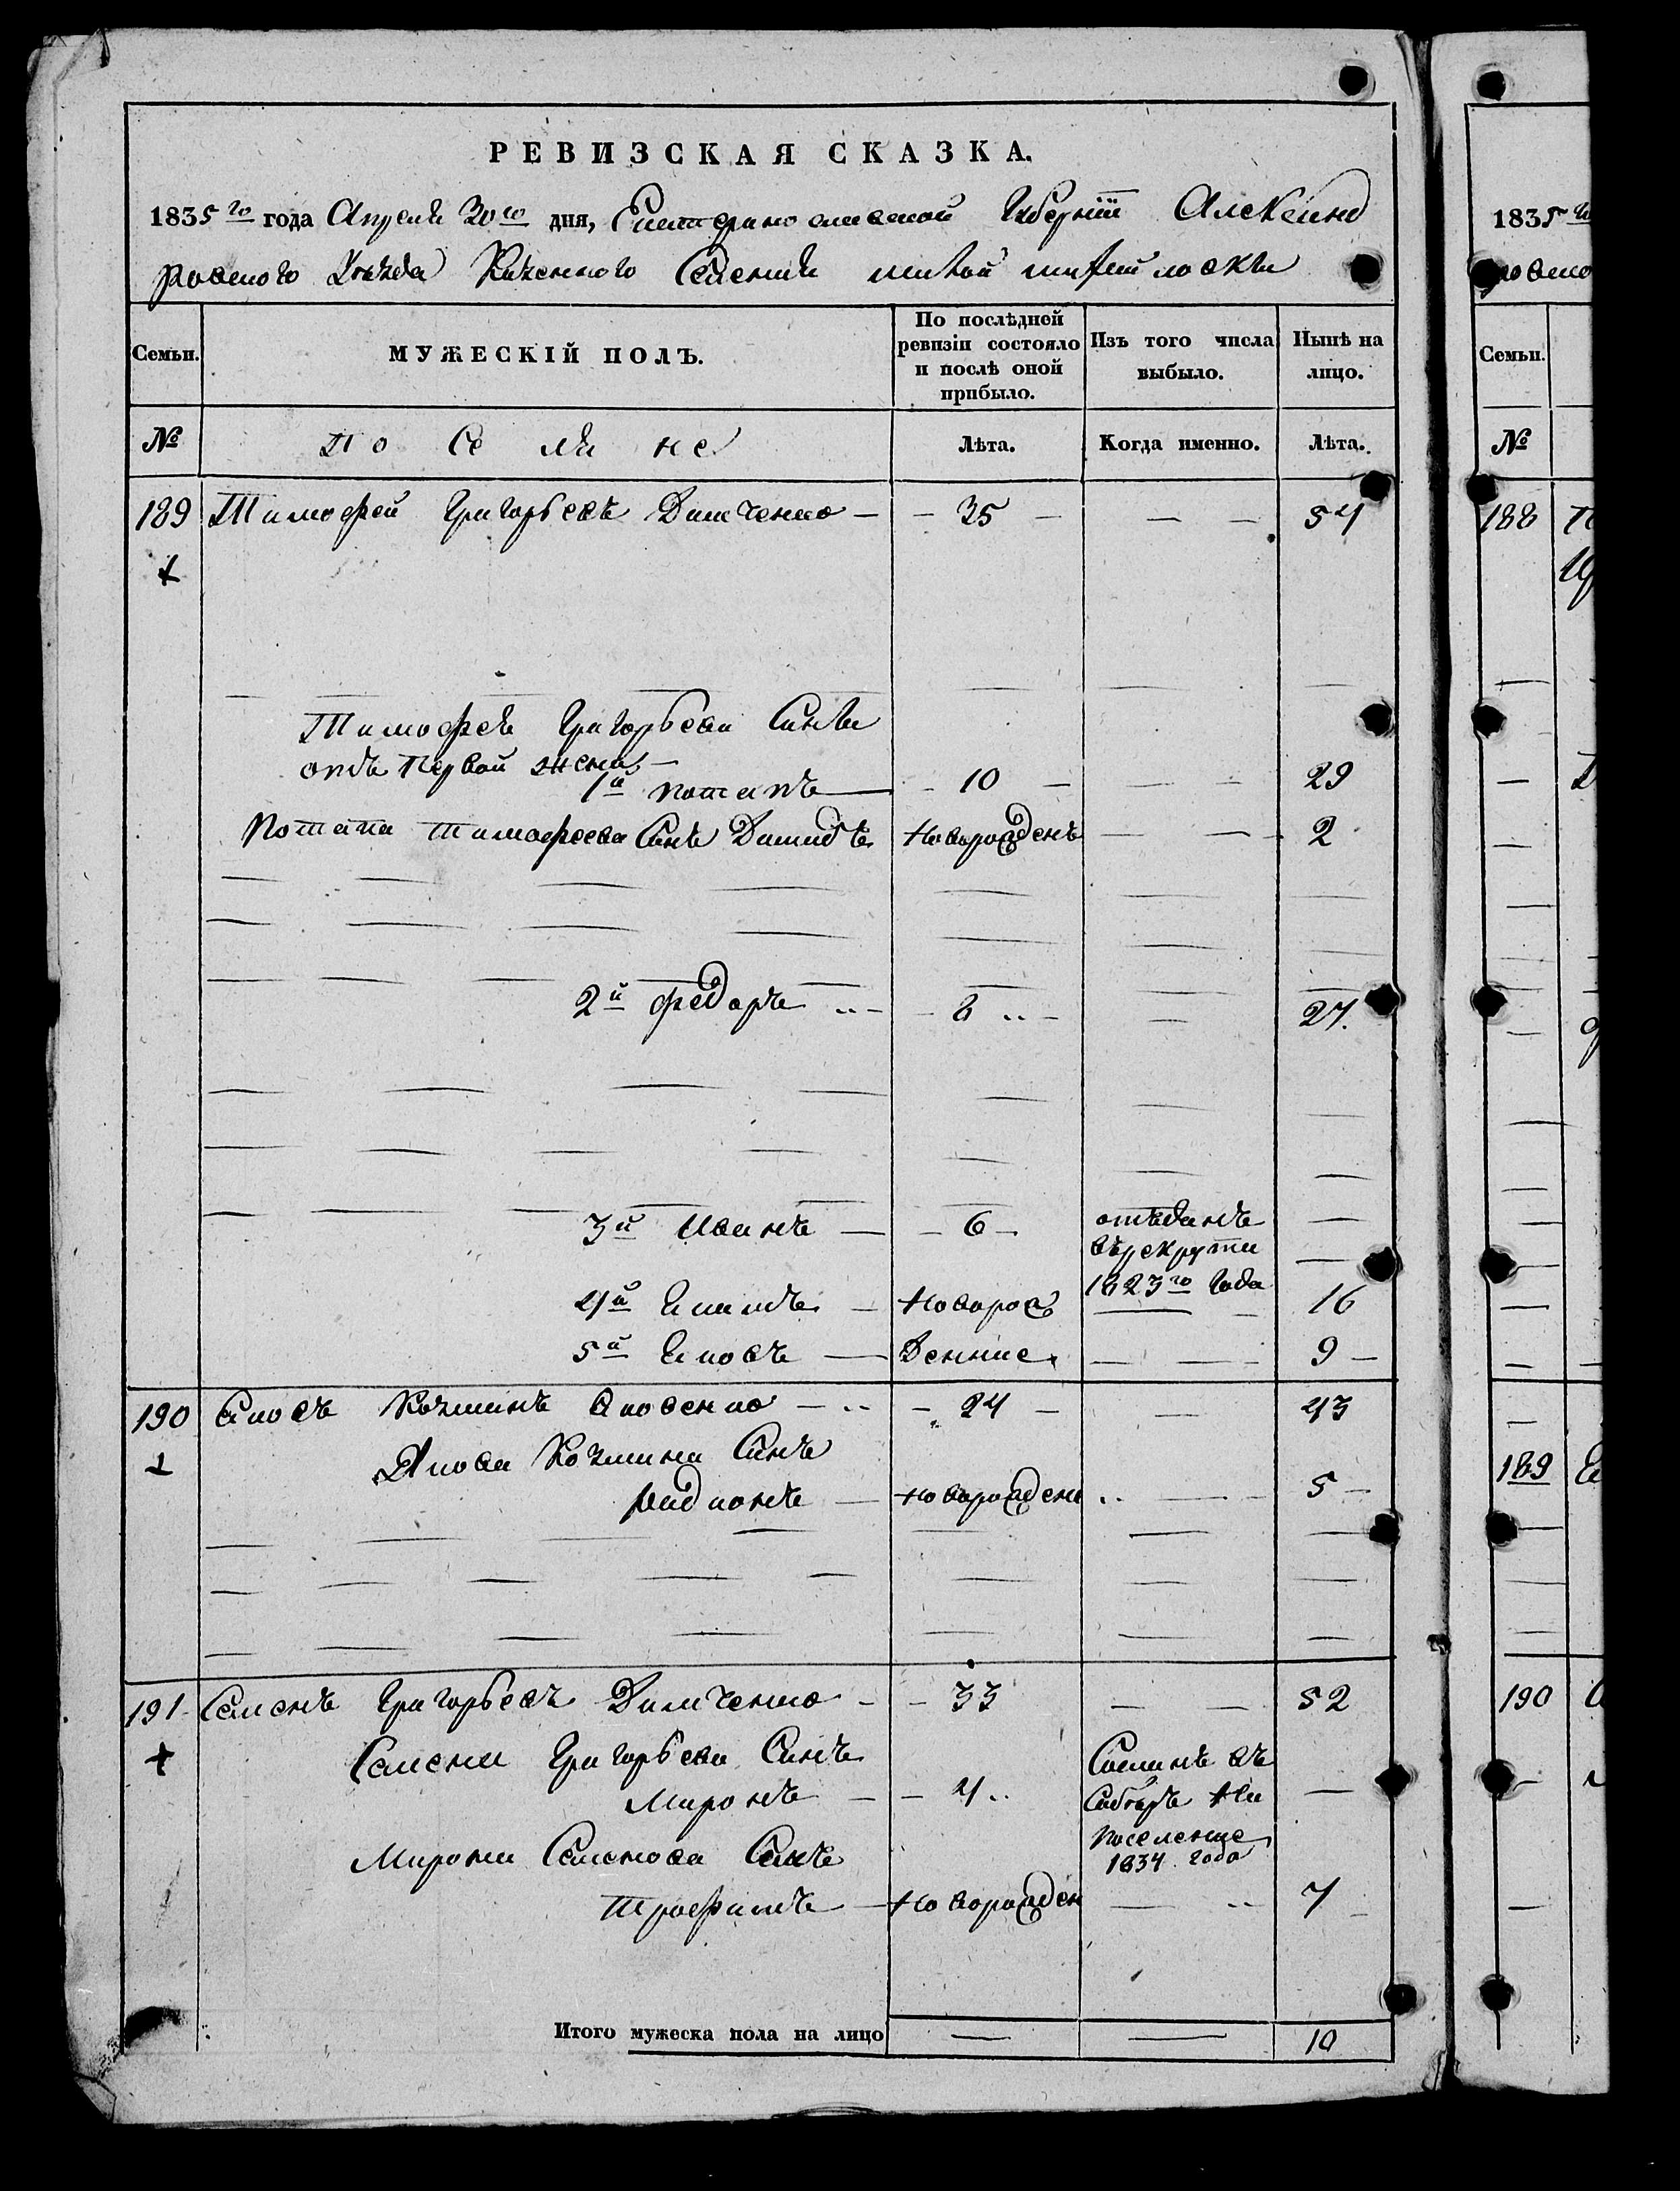 РЕВИЗСКАЯ СКАЗКА.
1835го года Апреля 30го дня, Екатеринославской Губернiи Александ
ровского Уѣзда Казенного Селенiя
Семьи.
МУЖЕСКІЙ ПОЛЪ.
По послѣдней ревизіи состояло и послѣ оной прибыло.
Изъ того числа выбыло.
Нынѣ на лицо.
№
поселяне
Лѣта.
Когда именно.
Лѣта.
189 Тимофей Григорьевъ Дымченко — 35 — 54
Тимофея Григорьева Сыны
отъ первой жены
1й Потапъ — 10 — 29
Потапа Тимофеева Сынъ Демидъ Новорожденъ 2
2й федоръ — 8 — 27.
3й Иванъ — 6 — отъданъ
въ рекруты
1823го Года
4й Екимъ — Новорож 16
5й Яковъ — Денние 9
190 Яковъ Козминъ Яковенко — 24 — 43
Якова Козмина Сынъ
Радионъ — Новорожденъ 5
191 Семенъ Григорьевъ Дымченко — 33 — 52
Семена Григорьева Сынъ
Миронъ — 4 — Сосланъ въ
Сибирь На
поселение
1834 года
Мирона Семенова Сынъ
Трофимъ — Новорожден 7
Итого мужеска пола на лицо — — 10
1835го
ровско
Семьи.
№
188
189
190